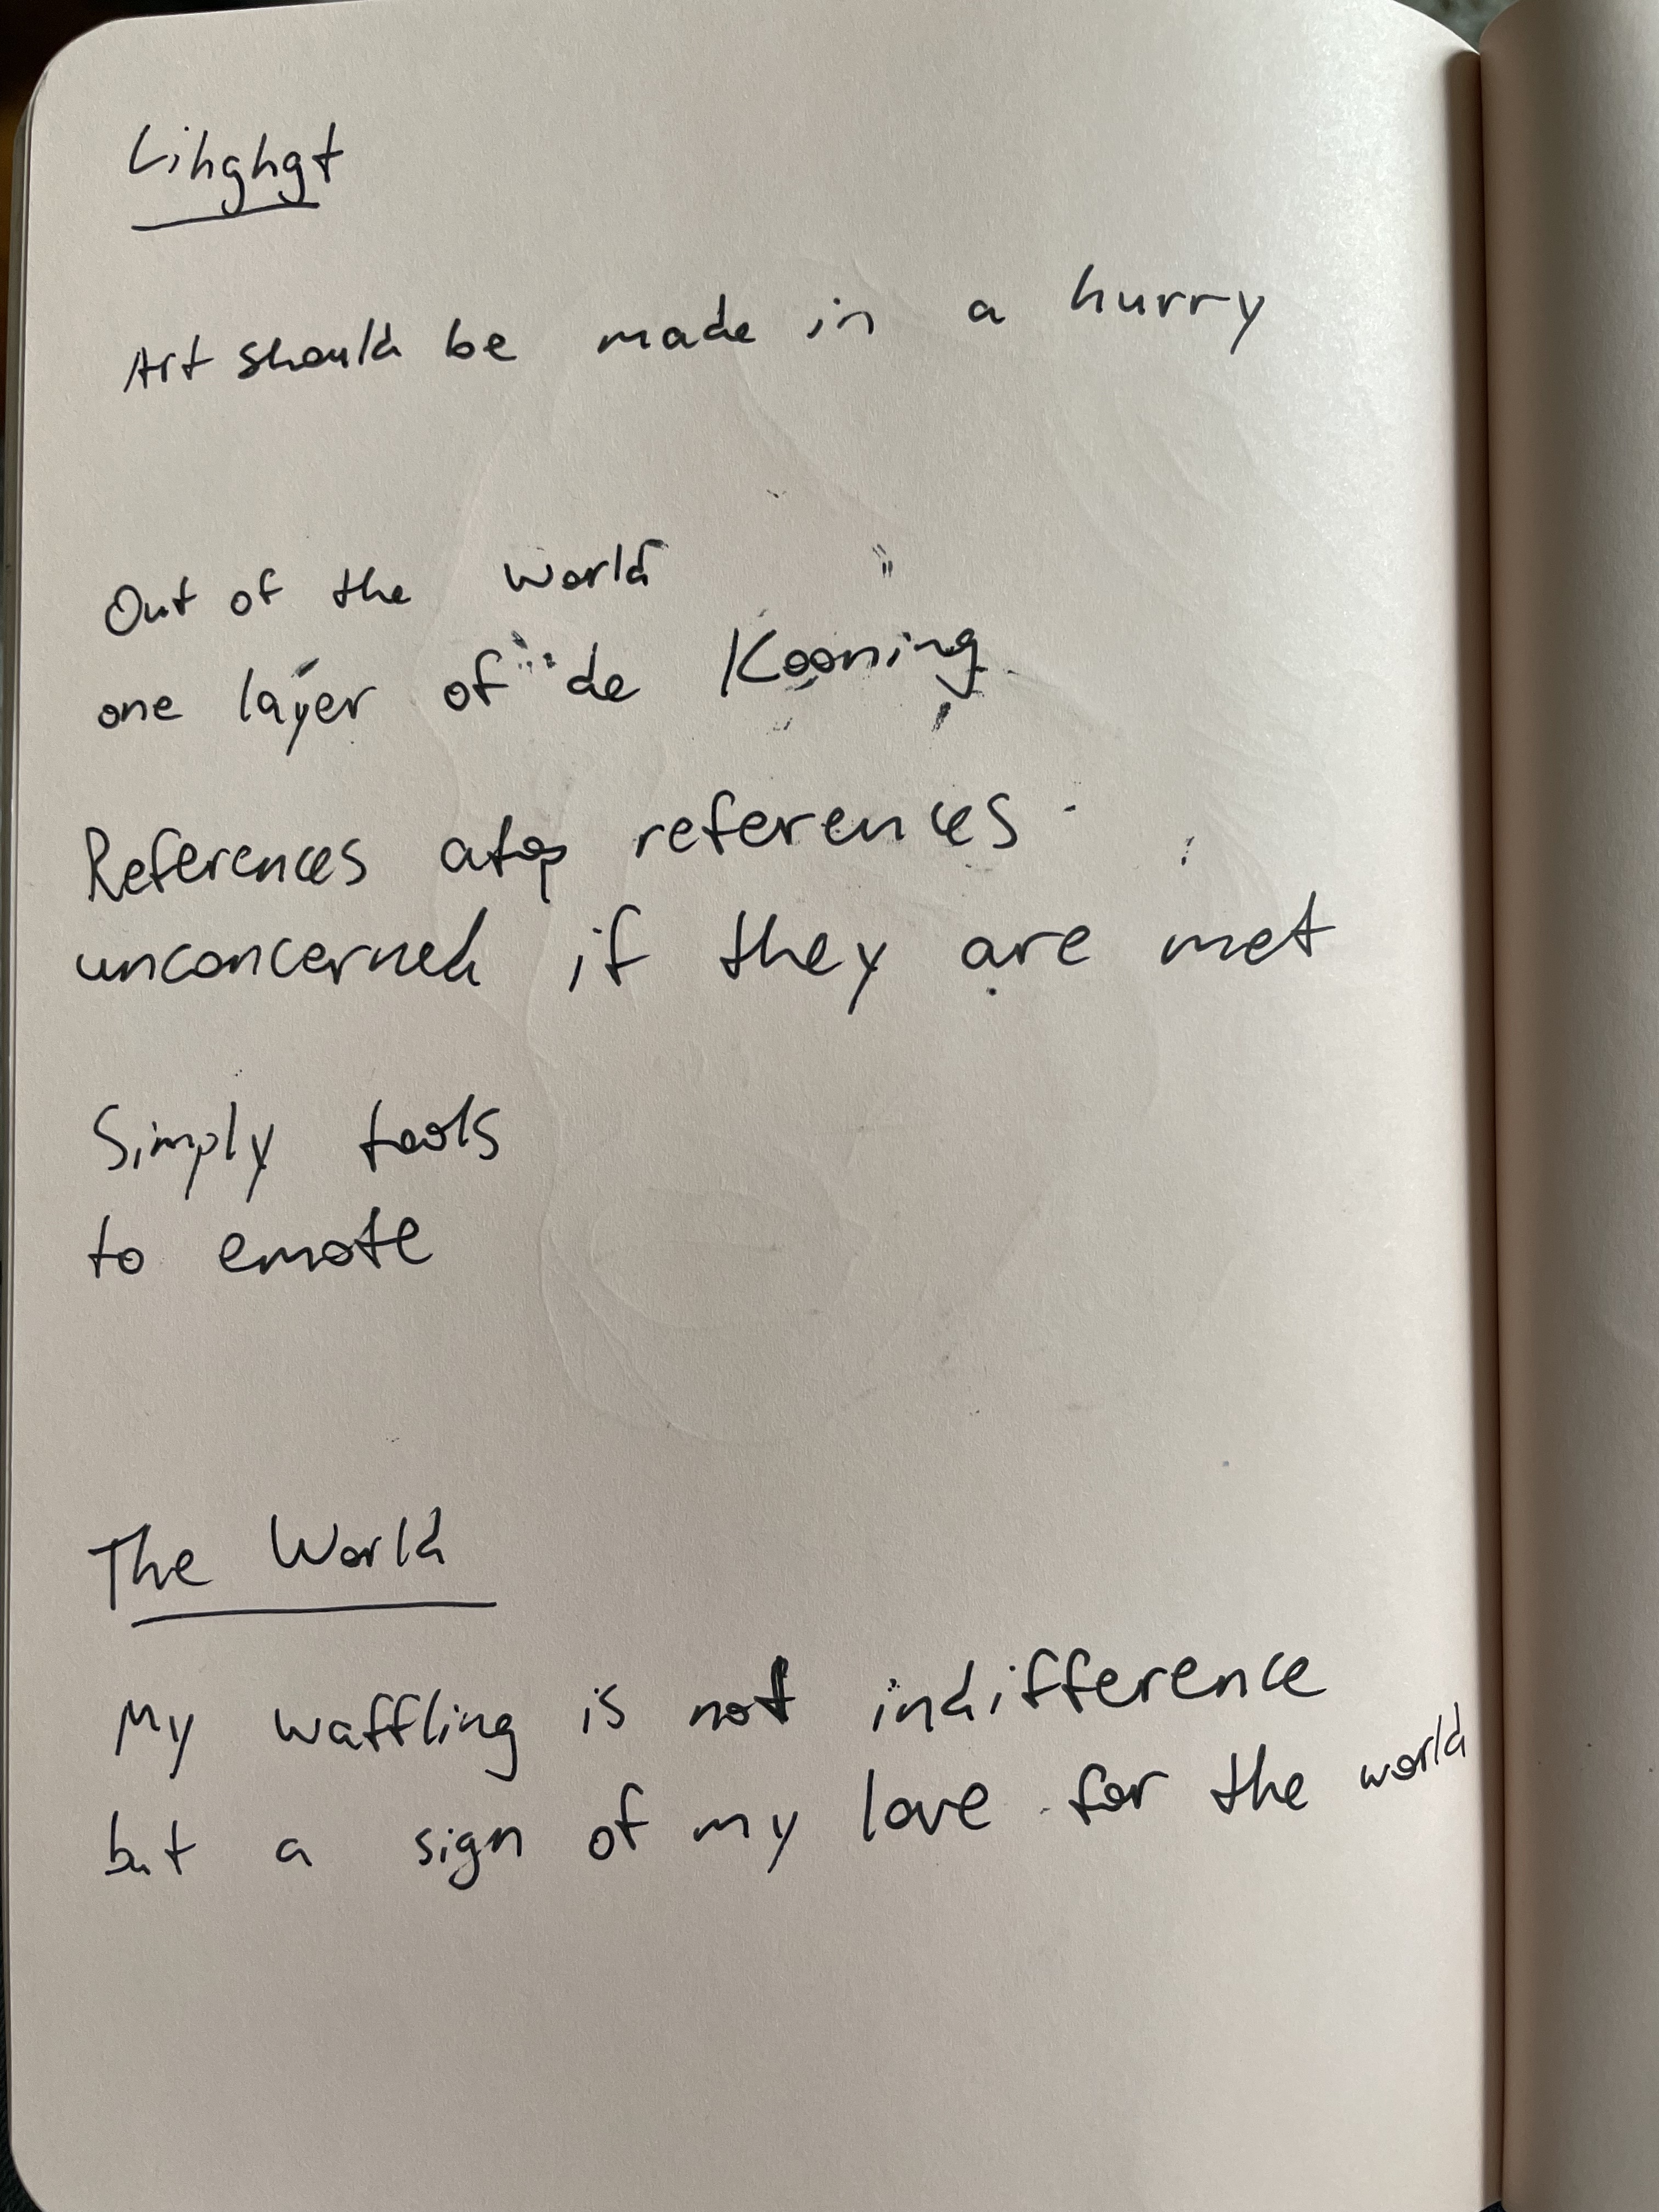 Lihghgt
Art should be made in a hurry
Out of the world
one layer of de Kooning
References atop references
unconcerned if they are met
Simply tools
to emote
The World
My waffling is not indifference
but a sign of my love for the world